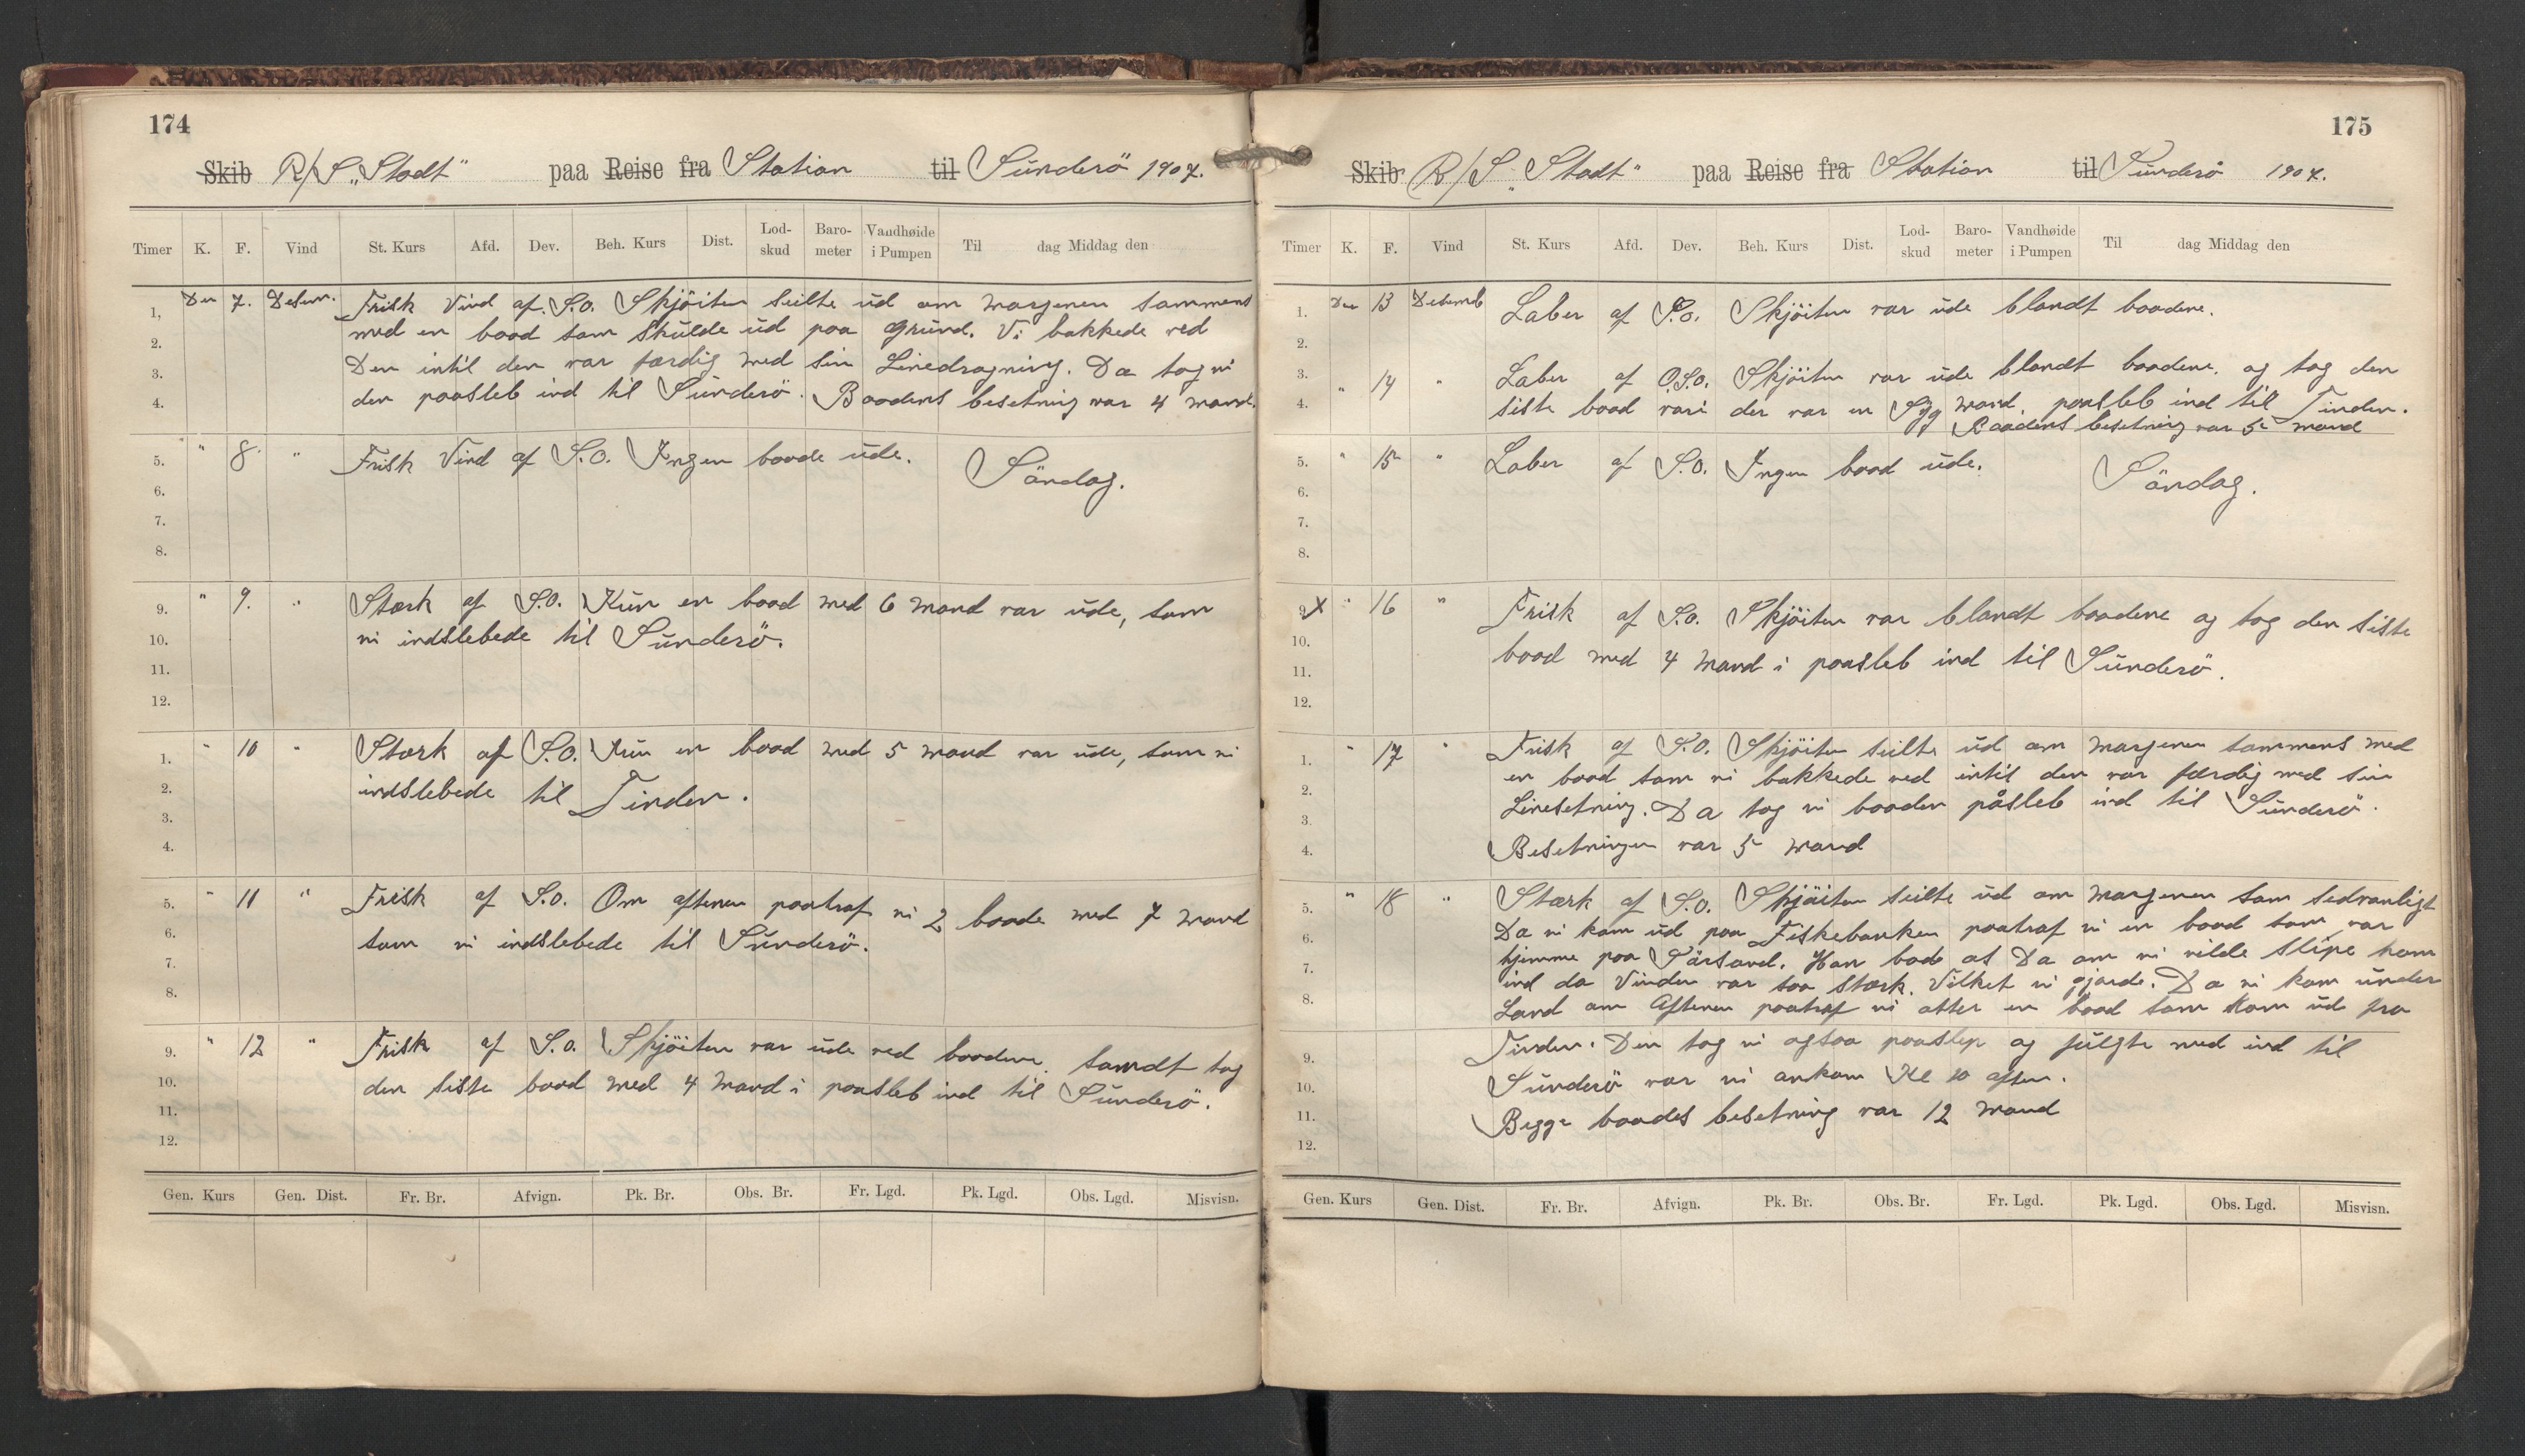 174
Skib R/S „Stadt" paa Reise fra Station til Sünderö 1907.
Timer K. F. Vind St. Kurs Afd. Dev. Beh. Kurs Dist. Lod-skud Baro-meter Vandhøide i Pumpen Til dag Middag den
1, Den 7. Desem. Frisk Vind af. S.O. Skjöiten seilte üd om morgenen sammens
2. med en baad som skulde üd paa Gründ. Vi bakkede ved
3. Den intil den var færdig med sin Linedragning. Da tog vi
4. den paasleb ind til Sünderö. Baadens besetning var 4 mand.
5. " 8. " Frisk Vind af S.O. Ingen baade üde. Söndag.
6.
7.
8.
9. " 9. " Stærk af S.O. Kün en baad med 6 mand var üde, som
10. vi indslebede til Sünderö.
11.
12.
1. " 10 " Stærk af S.O. Kün en baad med 5 mand var üde, som vi
2. indslebede til Tinden.
3.
4.
5. " 11 " Frisk af S.O. Om aftenen paatraf vi 2 baade med 7 mand
6. som vi indslebede til Sünderö.
7.
8.
9. " 12 " Frisk af S.O. Skjöiten var üde ved baadene. samdt tog
10. den siste baad med 4 mand i paasleb ind til Sünderö.
11.
12.
Gen. Kurs Gen. Dist. Fr. Br. Afvign. Pk. Br. Obs. Br. Fr. Lgd. Pk. Lgd. Obs. Lgd. Misvisn.
175
Skib R/S „Stadt" paa Reise fra Station til Sünderö 1907.
Timer K. F. Vind St. Kurs Afd. Dev. Beh. Kurs Dist. Lod-skud Baro-meter Vandhøide i Pumpen Til dag Middag den
1. Den 13 Desemb Laber af S.O. Skjöiten var üde blandt baadene.
2.
3. " 14 " Laber af O.S.O. Skjöiten var üde blandt baadene. og tog den
4. siste baad vari der var en Syg mand. paasleb ind til Tinden.
Baadens besetning var 5 mand
5. " 15 " Laber af S.O. Ingen baad üde. Söndag.
6.
7.
8.
9. X " 16 " Frisk af S.O. Skjöiten var blandt baadene og tog den siste
10.
11. baad med 4 mand i paasleb ind til Sünderö.
12.
1. " 17 " Frisk af S.O. Skjöiten seilte üd om morgenen sammens med
2. en baad som vi bakkede ved intil den var færdig med sin
3. Linesetning. Da tog vi baaden påsleb ind til Sünderö.
4. Besetningen var 5 mand
5. " 18 " Stærk af S.O. Skjöiten seilte üd om morgenen som sedvanligt
6. Da vi kom üd paa Fiskebanken paatraf vi en baad som var
7. hjemme paa Pärsand. Han bad os Da om vi vilde slæpe ham
8. ind da Vinden var saa stærk. Vilket vi gjorde. Da vi kom ünder
Land om Aftenen paatraf vi atter en baad som kom üd fra
9. Tinden. Den tog vi ogsaa paaslep og fülgte med ind til
10. Sünderö var vi ankom Kl 10 aften.
11. Begge baades besetning var 12 mand
12.
Gen. Kurs Gen. Dist. Fr. Br. Afvign. Pk. Br. Obs. Br. Fr. Lgd. Pk. Lgd. Obs. Lgd. Misvisn.